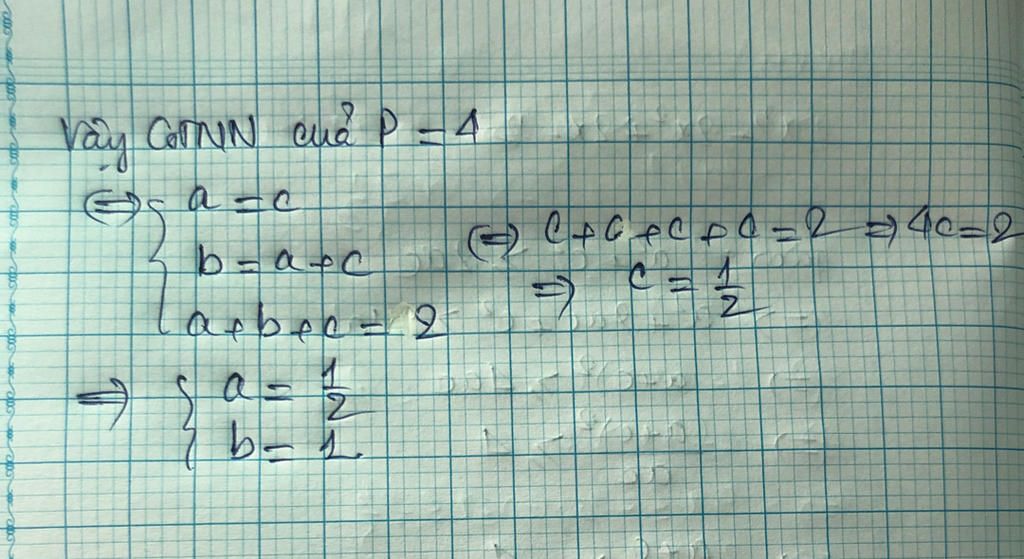 Vậy GTNN của P = 4
⇔ { a = c
b = a + c
a + b + c = 2
⇔ c + c + c + c = 2 ⇒ 4c = 2
⇒ c = 1/2
⇒ { a = 1/2
b = 1